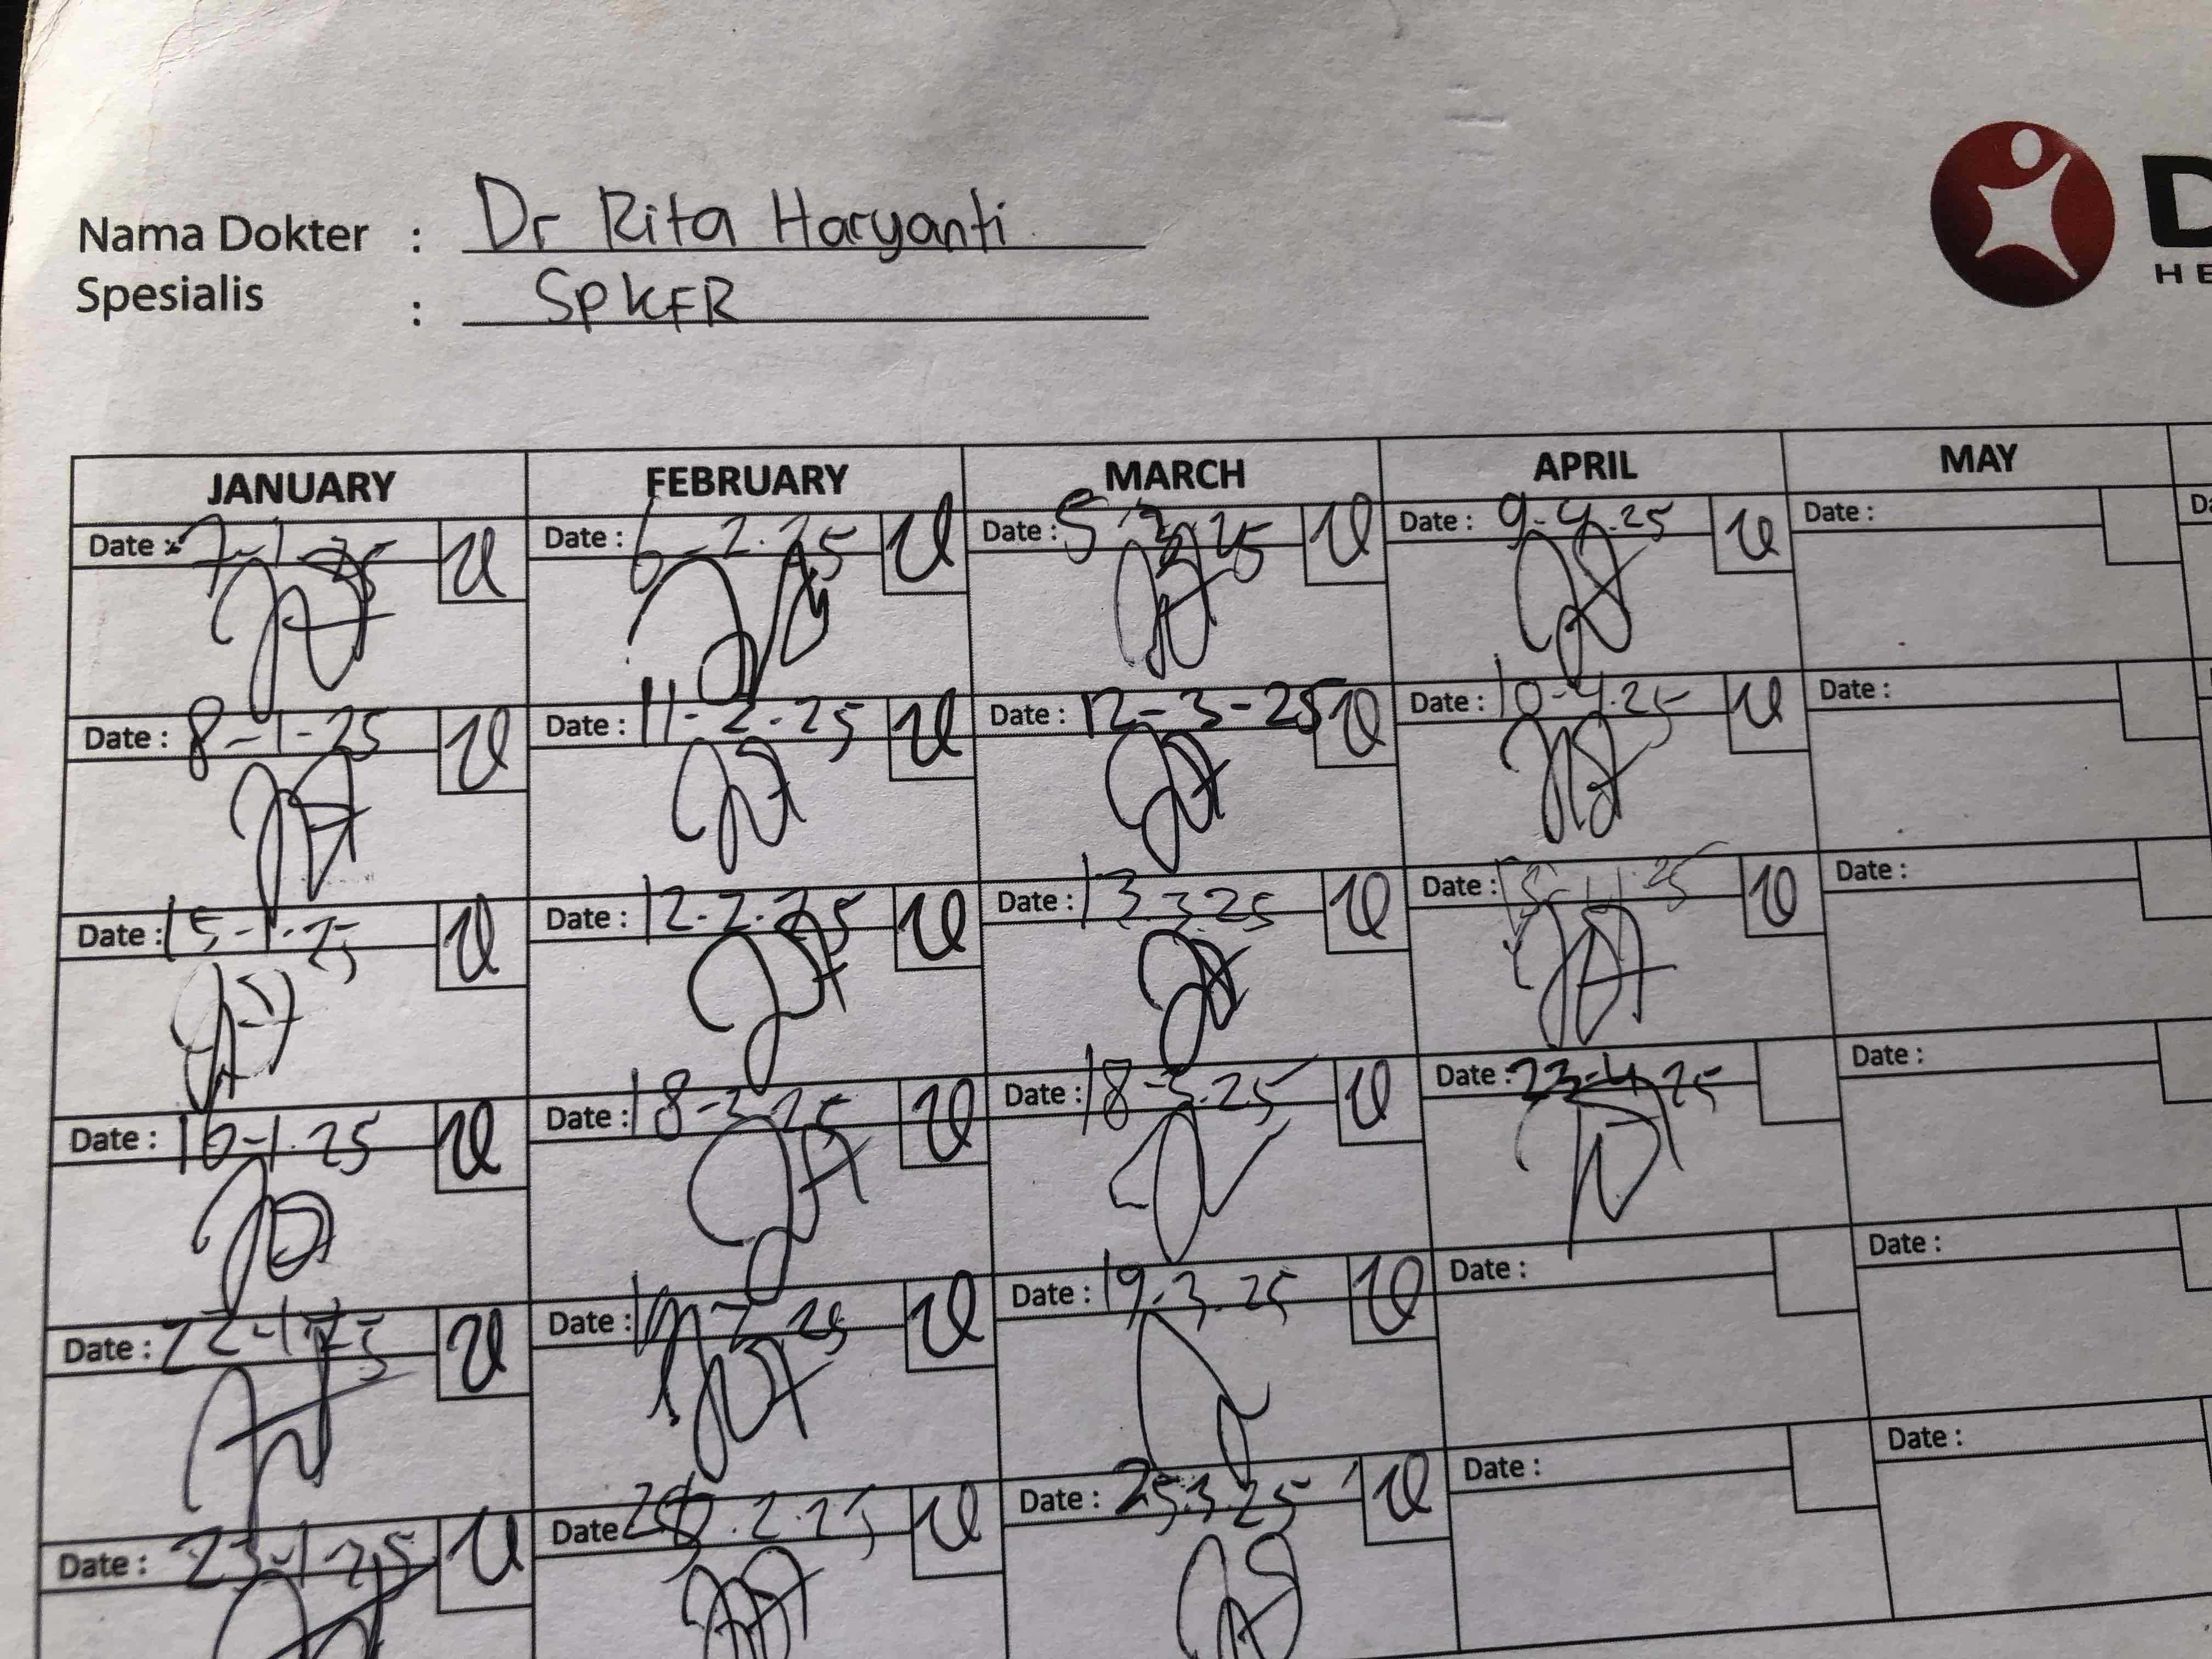 Nama Dokter : Dr Rita Haryanti
Spesialis : SpKFR
D
HE
JANUARY FEBRUARY MARCH APRIL MAY
Date : 7-1-25 Date : 6-2.25 Date : 5-3-25 Date : 9-4.25 Date : Da
Date : 8-1-25 Date : 11-2-25 Date : 12-3-25 Date : 10-4.25 Date :
Date : 15-1-25 Date : 12-2-25 Date : 13.3.25 Date : Date :
Date : 16-1.25 Date : Date : 18-3.25 Date : 23-4.25 Date :
Date : 22-1-25 Date : Date : 19.3.25 Date : Date :
Date : 23-1-25 Date : Date : 25.3.25 Date : Date :